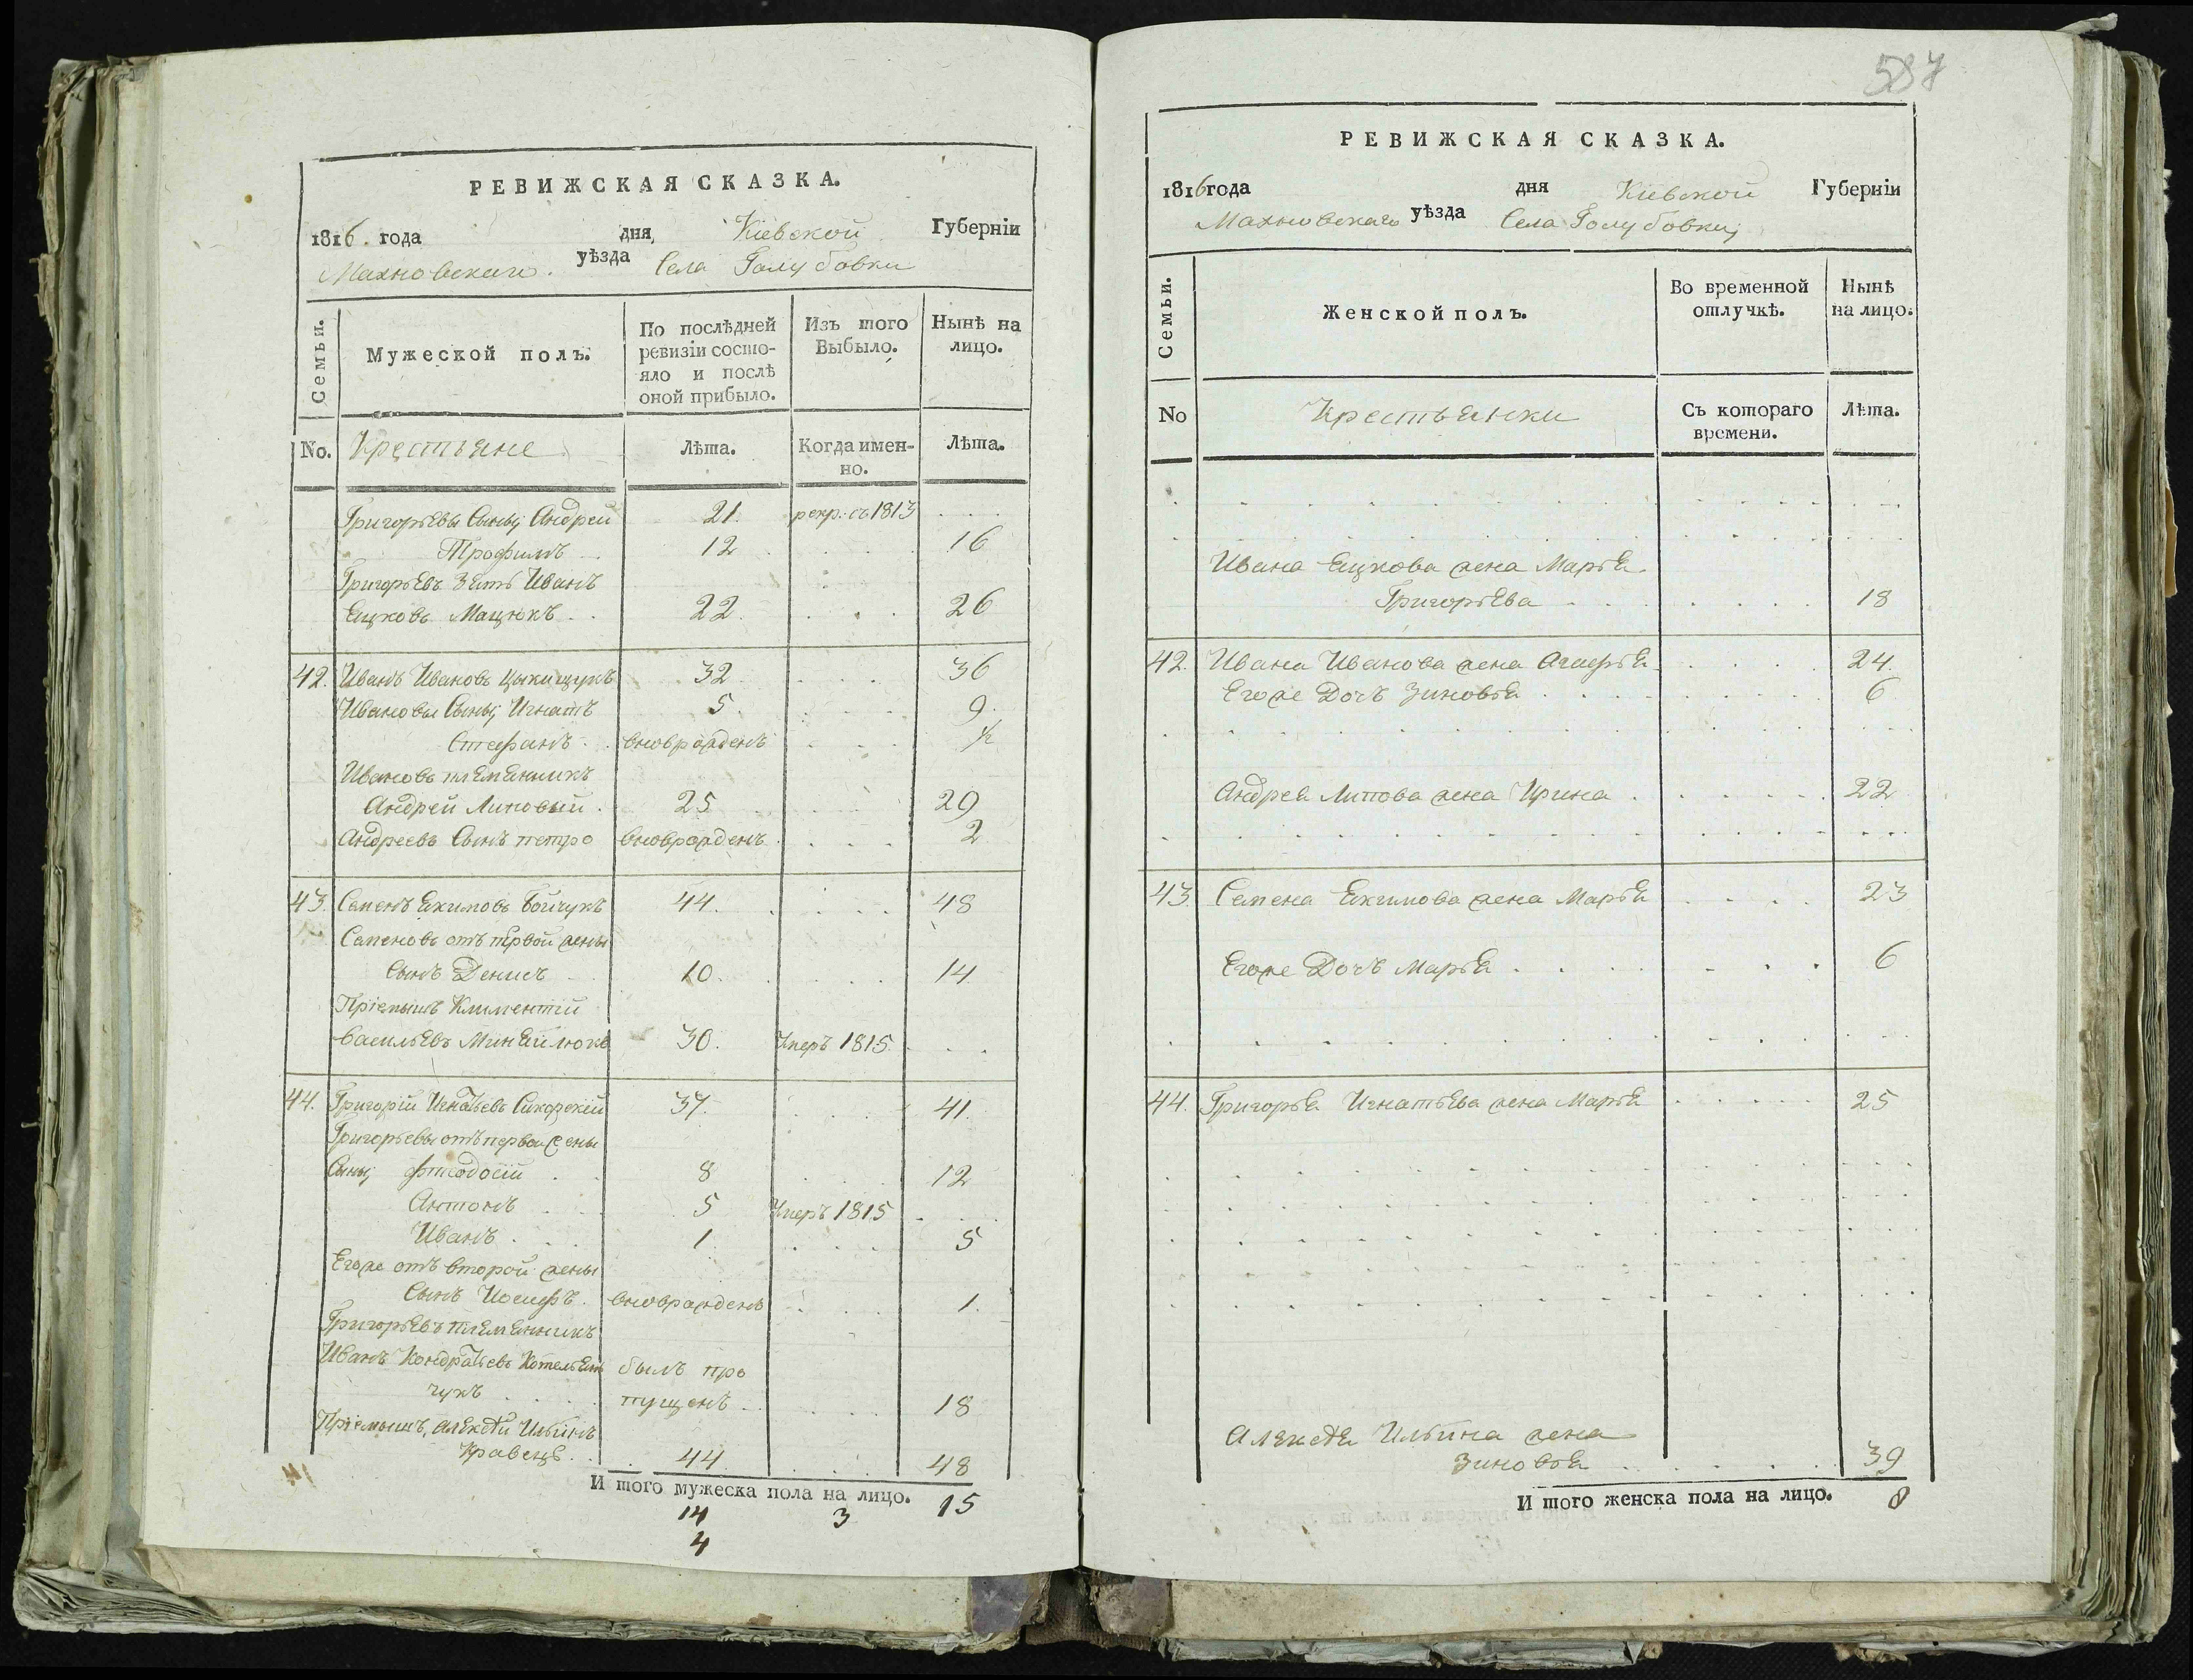 РЕВИЖСКАЯ СКАЗКА.
1816. года дня Кіевской Губерніи
Махновскаго. уѣзда Села Голубовки
Семьи. Мужеской полъ. По послѣдней ревизіи состояло и послѣ оной прибыло. Изъ того Выбыло. Нынѣ на лицо.
No. Крестьяне Лѣта. Когда именно. Лѣта.
Григорьевы Сыны Андрей 21. рекр: съ 1813 . . .
Трофимъ 12 16
Григорьевъ Зять Иванъ
Яцковъ Мацюкъ . . 22 26
42. Иванъ Ивановъ 32 36
Ивановы Сыны Игнатъ 5. 9.
Стефанъ . . вновьрожденъ ½
Ивановъ племянникъ
Андрей Липовый . 25 29
Андреевъ Сынъ петро вновьрожденъ 2
43. Семенъ Якимовъ Бойчукъ 44. 48
Семеновъ отъ первой жены
Сынъ Денисъ 10. 14
Пріемышъ Климентій
Васильевъ 30. Умеръ 1815 . . .
44. Григорій Игнатьевъ Сикорскій 37. 41.
Григорьевы отъ первой жены
Сыны Фтеодосій 8 12
Антонъ 5 Умеръ 1815
Иванъ 1 5
Егоже отъ второй жены
Сынъ Иосифъ . вновьрожденъ 1.
Григорьевъ племянникъ
Иванъ Кондратьевъ Котельян былъ про
чукъ пущенъ 18
Пріемышъ, Алексѣй Ильинъ
Кравецъ . 44 48
И того мужеска пола на лицо. 15
14 3
4
587
РЕВИЖСКАЯ СКАЗКА.
1816года дня Кіевской Губерніи
Махновскаго уѣзда Села Голубовки
Семьи. Женской полъ. Во временной отлучкѣ. Нынѣ на лицо.
No Крестьянки Съ котораго времени. Лѣта.
Ивана Яцкова жена Марья
Григорьева 18
42. Ивана Иванова жена Агафья 24.
Егоже Дочь Зиновья 6
Андрея Липова жена Ирина 22
43. Семена Якимова жена Марья 23
Егоже Дочь Марья 6
44. Григорья Игнатьева жена Марья 25
Алексѣя Ильина жена
Зиновья 39
И того женска пола на лицо. 8